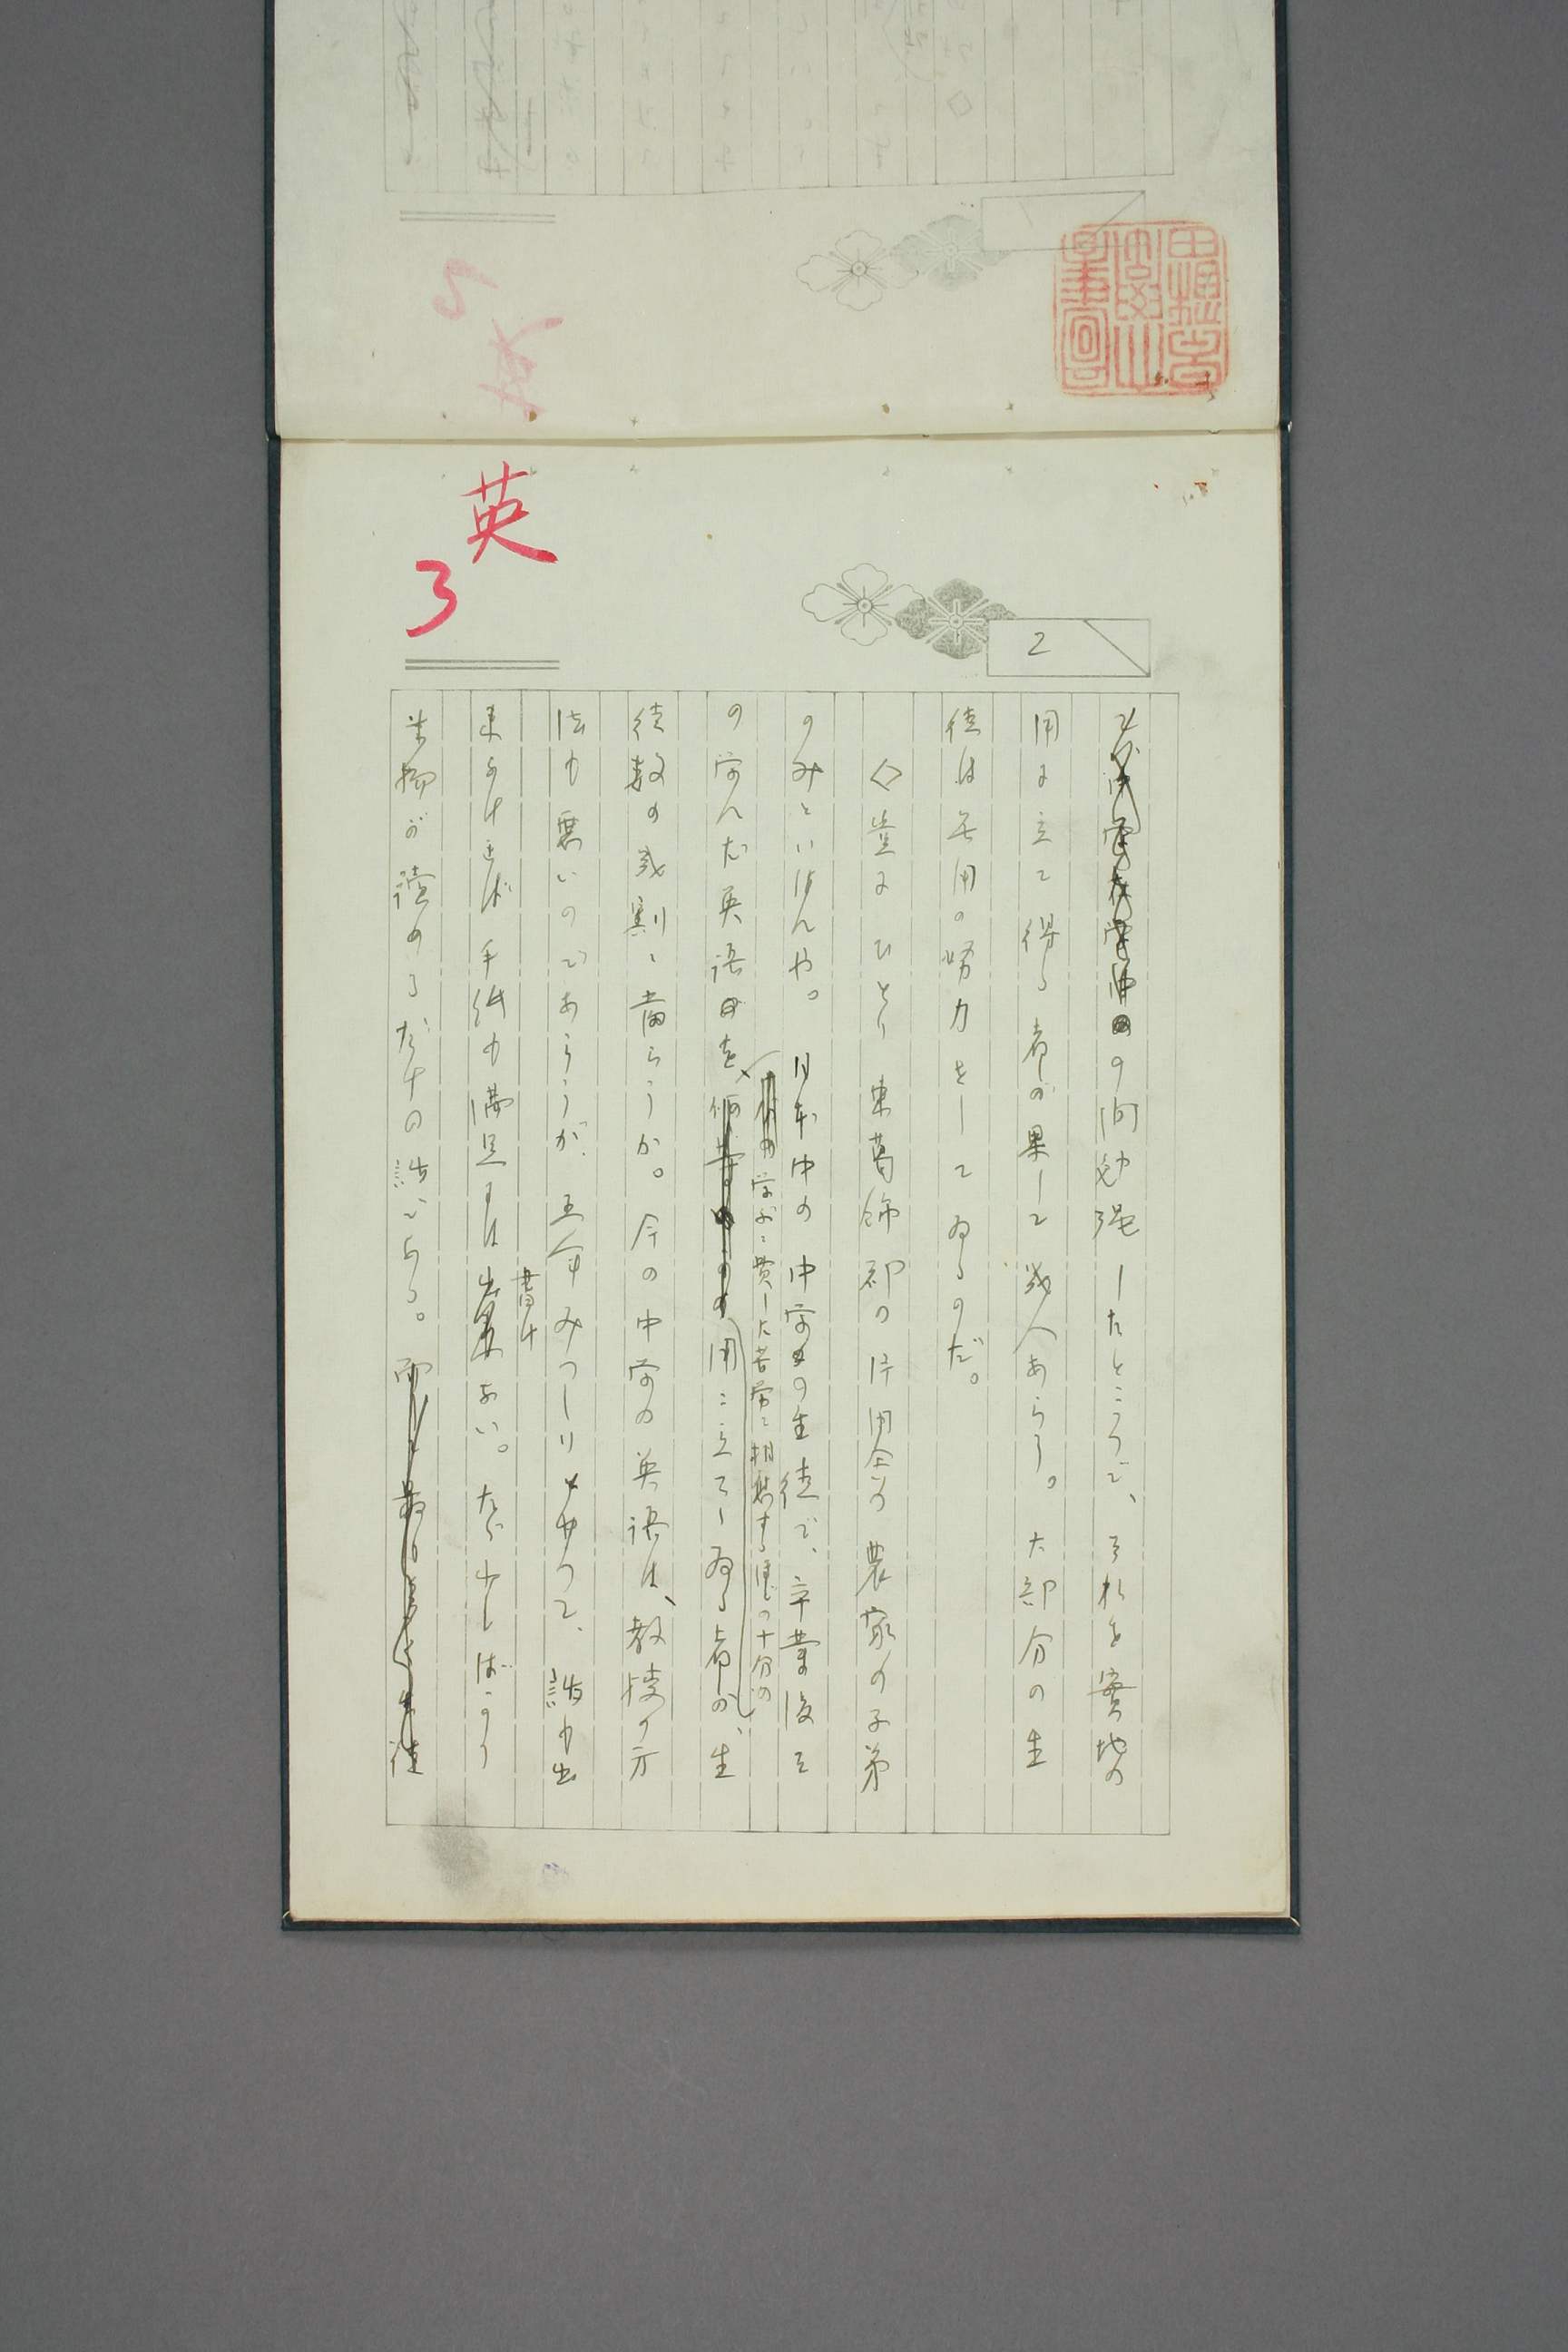 英
3
2
の間勉強したところで、それを實地の
用に立て得る者が果して幾人あらう。大部分の生
徒は無用の努力をしてゐるのだ。
◇豈にひとり東葛飾郡の片田舎の農家の子弟
のみといはんや。日本中の中学の生徒で、卒業後そ
の学んだ英語を
学ぶに費した苦労に相応する程の十分の
用に立てゝゐる者が、生
徒数の幾割に當らうか。今の中学の英語は、教授の方
法も悪いのであらうが、五年みつしりとやつて、話も出
来なければ手紙も満足には
書け
ない。たゞ少しばかり
書物が讀めるだけの話である。